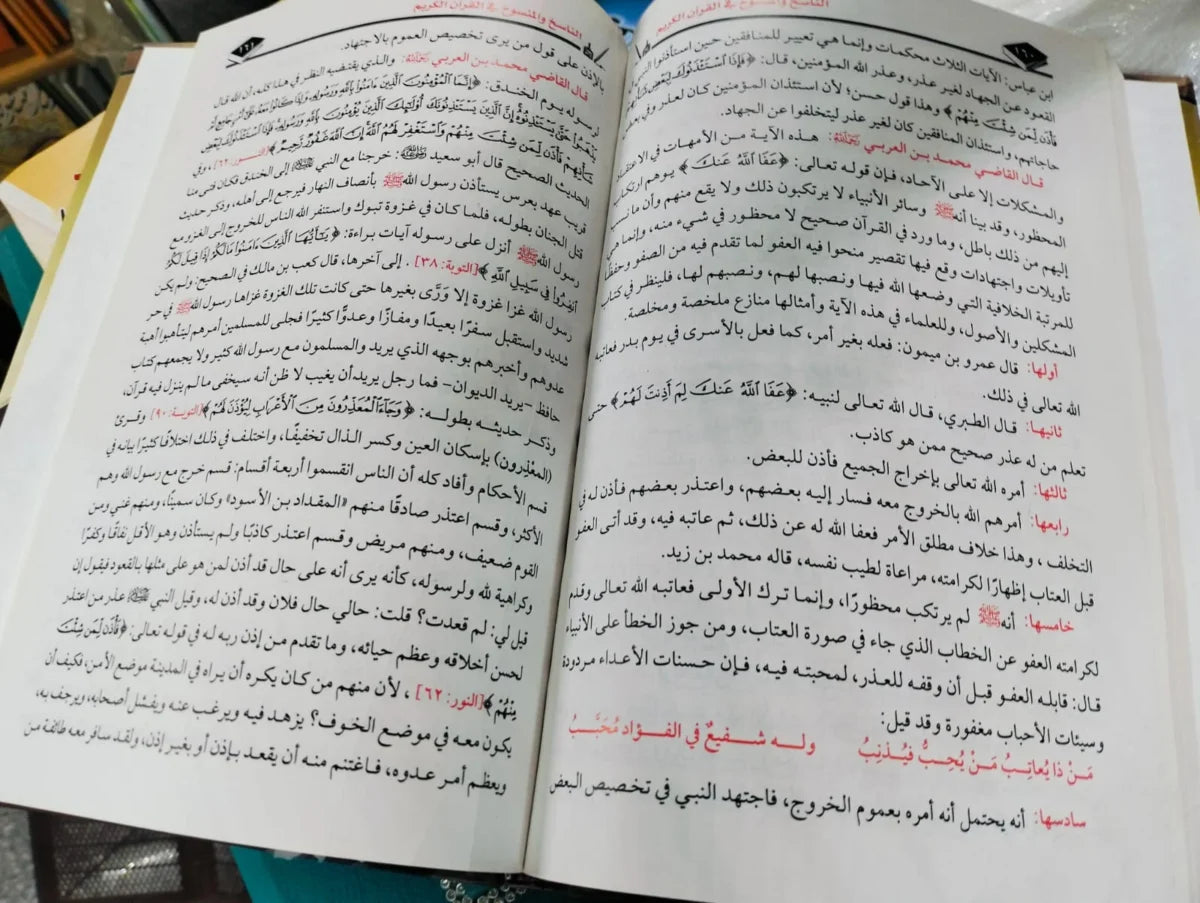 الناسخ والمنسوخ في القرآن الكريم
١٦٠
ابن عباس: الآيات الثلاث محكمات وإنما هي تعيير للمنافقين حين استأذنوا النبي
القعود عن الجهاد لغير عذر، وعذر الله المؤمنين، قال: ﴿فَإِذَا ٱسْتَـْٔذَنُوكَ لِبَعْضِ شَأْنِهِمْ
فَأْذَن لِّمَن شِئْتَ مِنْهُمْ﴾ وهذا قول حسن؛ لأن استئذان المؤمنين كان لعذر وفي بعض
حاجاتهم، واستئذان المنافقين كان لغير عذر ليتخلفوا عن الجهاد.
قال القاضي محمد بن العربي رحمه الله: هذه الآية من الأمهات في الاعتقاد
والمشكلات إلا على الآحاد، فإن قوله تعالى: ﴿عَفَا ٱللَّهُ عَنكَ﴾ يوهم ارتكاب
المحظور، وقد بينا أنه ﷺ وسائر الأنبياء لا يرتكبون ذلك ولا يقع منهم وأن ما نسب
إليهم من ذلك باطل، وما ورد في القرآن صحيح لا محظور في شيء منه، وإنما هي
تأويلات واجتهادات وقع فيها تقصير منحوا فيه العفو لما تقدم فيه من الصفو وحفظًا
للمرتبة الخلافية التي وضعها الله فيها ونصبها لهم، ونصبهم لها، فلينظر في كتاب
المشكلين والأصول، وللعلماء في هذه الآية وأمثالها منازع ملخصة ومخلصة.
أولها: قال عمرو بن ميمون: فعله بغير أمر، كما فعل بالأسرى في يوم بدر فعاتبه
الله تعالى في ذلك.
ثانيها: قال الطبري، قال الله تعالى لنبيه: ﴿عَفَا ٱللَّهُ عَنكَ لِمَ أَذِنتَ لَهُمْ﴾ حتى
تعلم من له عذر صحيح ممن هو كاذب.
ثالثها: أمره الله تعالى بإخراج الجميع فأذن للبعض.
رابعها: أمرهم الله بالخروج معه فسار إليه بعضهم، واعتذر بعضهم فأذن له في
التخلف، وهذا خلاف مطلق الأمر فعفا الله له عن ذلك، ثم عاتبه فيه، وقد أتى العفو
قبل العتاب إظهارًا لكرامته، مراعاة لطيب نفسه، قاله محمد بن زيد.
خامسها: أنه ﷺ لم يرتكب محظورًا، وإنما ترك الأولى فعاتبه الله تعالى وقدم
لكرامته العفو عن الخطاب الذي جاء في صورة العتاب، ومن جوز الخطأ على الأنبياء
قال: قابله العفو قبل أن وقفه للعذر، لمحبته فيه، فإن حسنات الأعداء مردودة
وسيئات الأحباب مغفورة وقد قيل:
مَنْ ذا يُعاتِبُ مَنْ يُحِبُّ فيُذنِبُ وله شفيعٌ في الفؤاد مُحَبَّبُ
سادسها: أنه يحتمل أنه أمره بعموم الخروج، فاجتهد النبي في تخصيص البعض
الناسخ والمنسوخ في القرآن الكريم
١٦١
بالإذن على قول من يرى تخصيص العموم بالاجتهاد.
قال القاضي محمد بن العربي رحمه الله: والذي يقتضيه النظر في هذا كله، أن الله قال
لرسوله يوم الخندق: ﴿إِنَّمَا ٱلْمُؤْمِنُونَ ٱلَّذِينَ ءَامَنُوا۟ بِٱللَّهِ وَرَسُولِهِۦ وَإِذَا كَانُوا۟ مَعَهُۥ عَلَىٰٓ أَمْرٍ جَامِعٍ لَّمْ
يَذْهَبُوا۟ حَتَّىٰ يَسْتَـْٔذِنُوهُ إِنَّ ٱلَّذِينَ يَسْتَـْٔذِنُونَكَ أُو۟لَٰٓئِكَ ٱلَّذِينَ يُؤْمِنُونَ بِٱللَّهِ وَرَسُولِهِۦ فَإِذَا ٱسْتَـْٔذَنُوكَ لِبَعْضِ
شَأْنِهِمْ فَأْذَن لِّمَن شِئْتَ مِنْهُمْ وَٱسْتَغْفِرْ لَهُمُ ٱللَّهَ إِنَّ ٱللَّهَ غَفُورٌ رَّحِيمٌ﴾ [النور: ٦٢]، وفي
الحديث الصحيح قال أبو سعيد رضي الله عنه: خرجنا مع النبي ﷺ إلى الخندق فكان فتى منا
قريب عهد بعرس يستأذن رسول الله ﷺ بأنصاف النهار فيرجع إلى أهله، وذكر حديث
قتل الجنان بطوله، فلما كان في غزوة تبوك واستنفر الله الناس للخروج إلى الغزو مع
رسول الله ﷺ أنزل على رسوله آيات براءة: ﴿يَٰٓأَيُّهَا ٱلَّذِينَ ءَامَنُوا۟ مَا لَكُمْ إِذَا قِيلَ لَكُمُ
ٱنفِرُوا۟ فِى سَبِيلِ ٱللَّهِ﴾ [التوبة: ٣٨]. إلى آخرها، قال كعب بن مالك في الصحيح: ولم يكن
رسول الله غزا غزوة إلا وَرَّى بغيرها حتى كانت تلك الغزوة غزاها رسول الله ﷺ في حر
شديد واستقبل سفرًا بعيدًا ومفازًا وعدوًّا كثيرًا فجلى للمسلمين أمرهم ليتأهبوا أهبة
عدوهم وأخبرهم بوجهه الذي يريد والمسلمون مع رسول الله كثير ولا يجمعهم كتاب
حافظ –يريد الديوان– فما رجل يريد أن يغيب إلا ظن أنه سيخفى ما لم ينزل فيه قرآن،
وذكر حديثه بطوله: ﴿وَجَآءَ ٱلْمُعَذِّرُونَ مِنَ ٱلْأَعْرَابِ لِيُؤْذَنَ لَهُمْ﴾ [التوبة: ٩٠] وقرئ
(المعْذِرون) بإسكان العين وكسر الذال تخفيفًا، واختلف في ذلك اختلافًا كثيرًا بيانه في
قسم الأحكام وأفاد كله أن الناس انقسموا أربعة أقسام: قسم خرج مع رسول الله وهم
الأكثر، وقسم اعتذر صادقًا منهم «المقداد بن الأسود» وكان سمينًا، ومنهم غني ومن
القوم ضعيف، ومنهم مريض وقسم اعتذر كاذبًا ولم يستأذن وهو الأقل نفاقًا وكفرًا
وكراهية لله ولرسوله، كأنه يرى أنه على حال قد أذن لمن هو على مثلها بالقعود فيقول إن
قيل لي: لم قعدت؟ قلت: حالي حال فلان وقد أذن له، وقيل النبي ﷺ عذر من اعتذر
لحسن أخلاقه وعظم حيائه، وما تقدم من إذن ربه له في قوله تعالى: ﴿فَأْذَن لِّمَن شِئْتَ
مِنْهُمْ﴾ [النور: ٦٢]، لأن منهم من كان يكره أن يراه في المدينة موضع الأمن، فكيف أن
يكون معه في موضع الخوف؟ يزهد فيه ويرغب عنه ويفشل أصحابه، ويرجف به،
ويعظم أمر عدوه، فاغتنم منه أن يقعد بإذن أو بغير إذن، ولقد سافر معه طائفة من